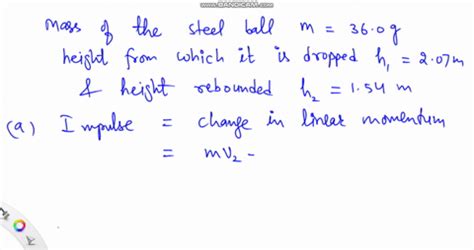 WWW.BANDICAM.COM
mass of the steel ball m = 36.0 g
height from which it is dropped h₁ = 2.07m
& height rebounded h₂ = 1.54 m
(a) Impulse = change in linear momentum
= mv₂ -